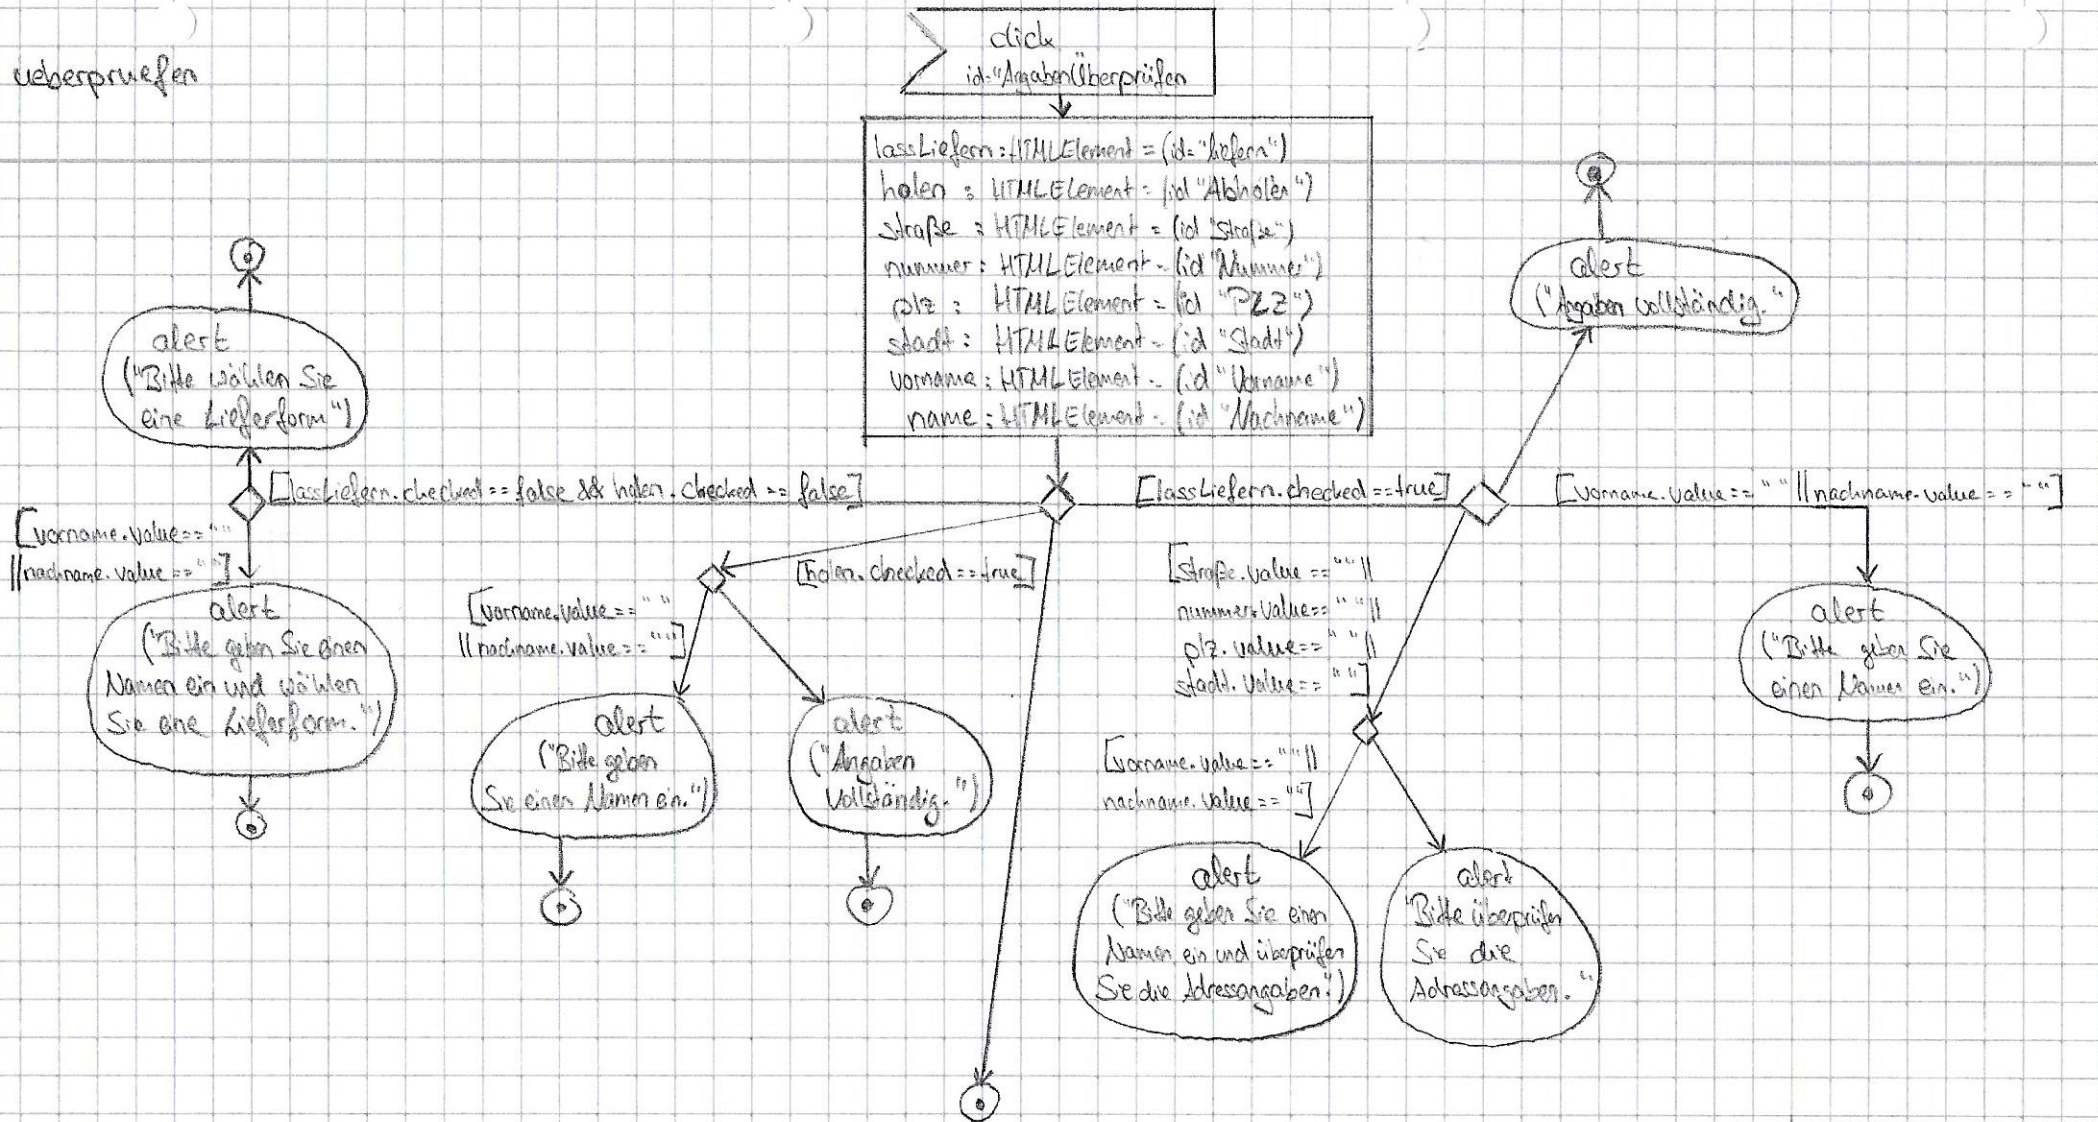 ueberpruefen
click
id="AngabenÜberprüfen
lassLiefern:HTMLElement = (id="liefern")
holen : HTMLELement = (id "Abholen")
straße : HTMLElement = (id "Straße")
nummer : HTMLElement = (id "Nummer")
plz : HTMLElement = (id "PLZ")
stadt : HTMLElement = (id "Stadt")
vorname : HTMLElement = (id "Vorname")
name : HTMLElement = (id "Nachname")
alert
("Bitte wählen Sie
eine Lieferform")
[lassLiefern.checked == false && holen.checked == false]
[vorname.value == ""
|| nachname.value == ""]
alert
("Bitte geben Sie einen
Namen ein und wählen
Sie eine Lieferform.")
[holen.checked == true]
[vorname.value == ""
|| nachname.value == ""]
alert
("Bitte geben
Sie einen Namen ein.")
alert
("Angaben
vollständig.")
[lassLiefern.checked == true]
alert
("Angaben vollständig."
[vorname.value == "" || nachname.value == ""]
alert
("Bitte geben Sie
einen Namen ein.")
[straße.value == "" ||
nummer.value == "" ||
plz.value == "" ||
stadt.value == ""]
[vorname.value == "" ||
nachname.value == ""]
alert
("Bitte geben Sie einen
Namen ein und überprüfen
Sie die Adressangaben.")
alert
"Bitte überprüfen
Sie die
Adressangaben."